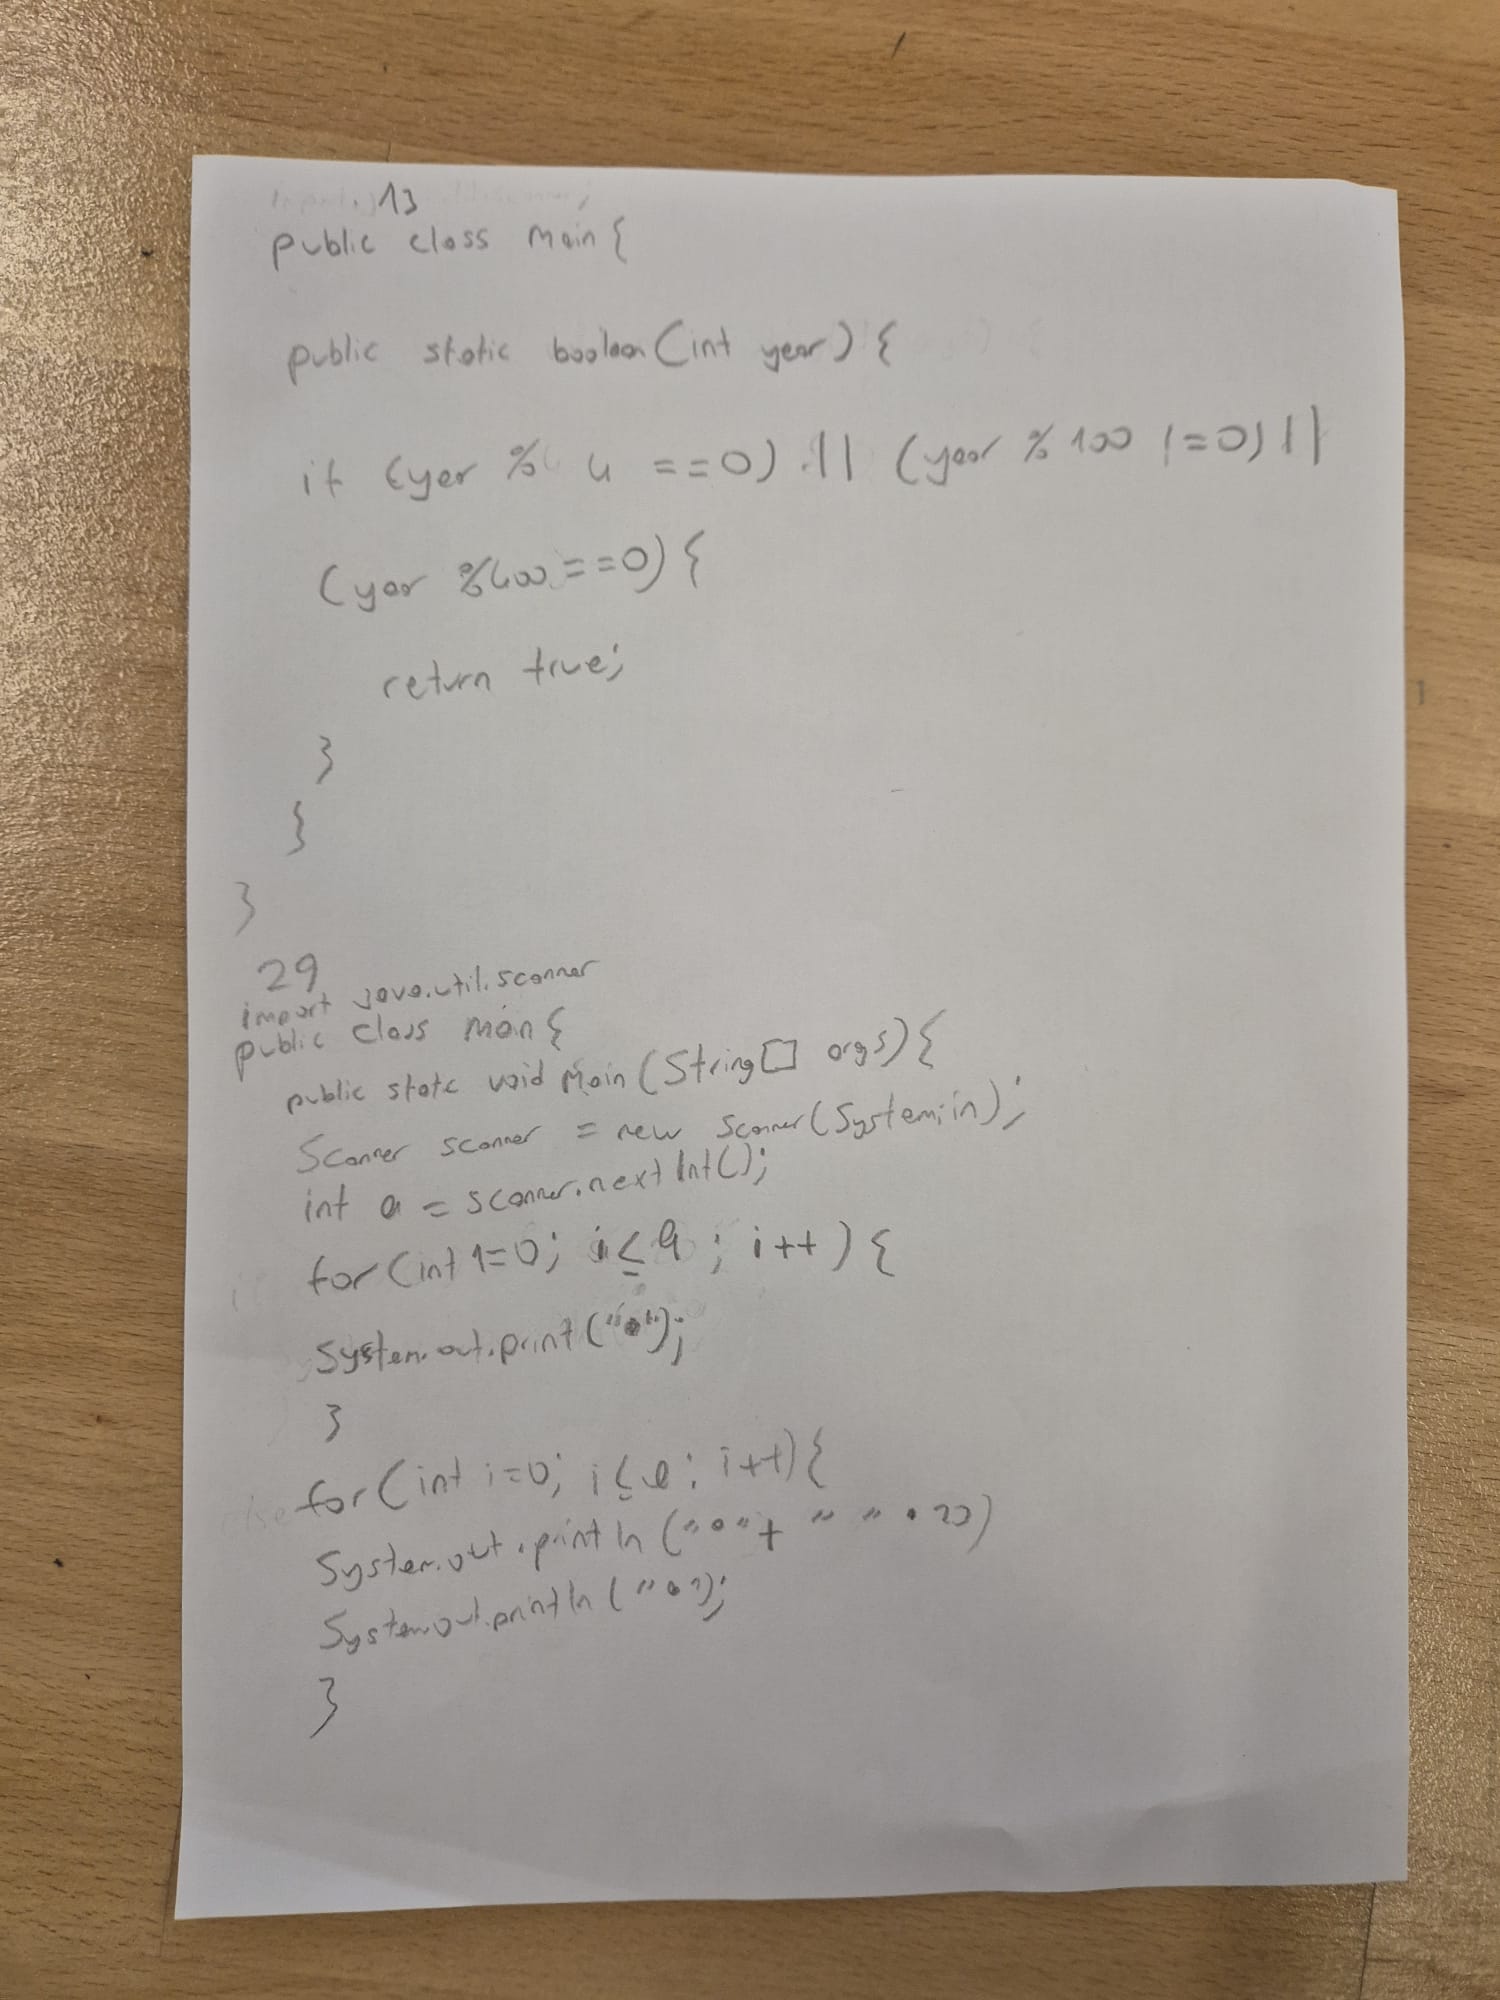 13
public class Main {
public static boolean (int year) {
if (yer % 4 ==0) || (year % 100 !=0) ||
(year %400 ==0) {
return true;
}
}
}
29
import java.util.scanner
public class Main {
public static void Main (String[] args) {
Scanner scanner = new Scanner (System.in);
int a = scanner.nextInt();
for (int 1=0; i≤a; i++) {
System.out.print("*");
}
for (int i=0; i≤a; i++) {
System.out.println ("*"+ " "
System.out.println ("*");
}